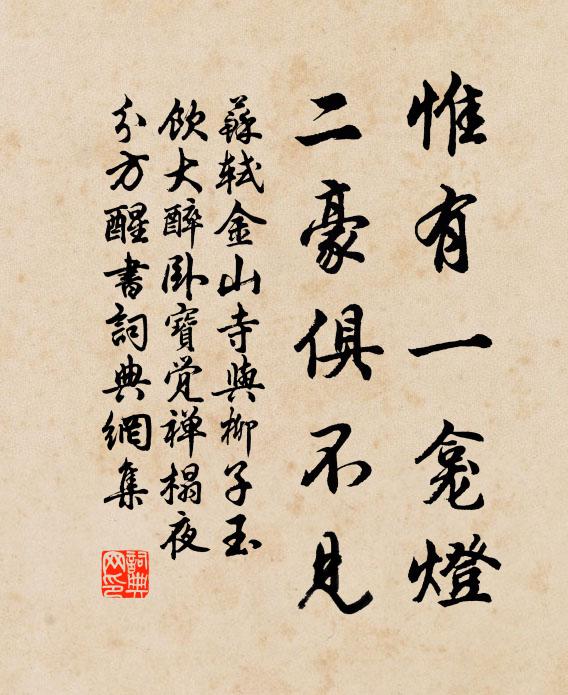 惟有一龕燈
二豪俱不見
蘇軾金山寺與柳子玉
飲大醉臥寶覺禅榻夜
分方醒書詞典網集
詞典
网印